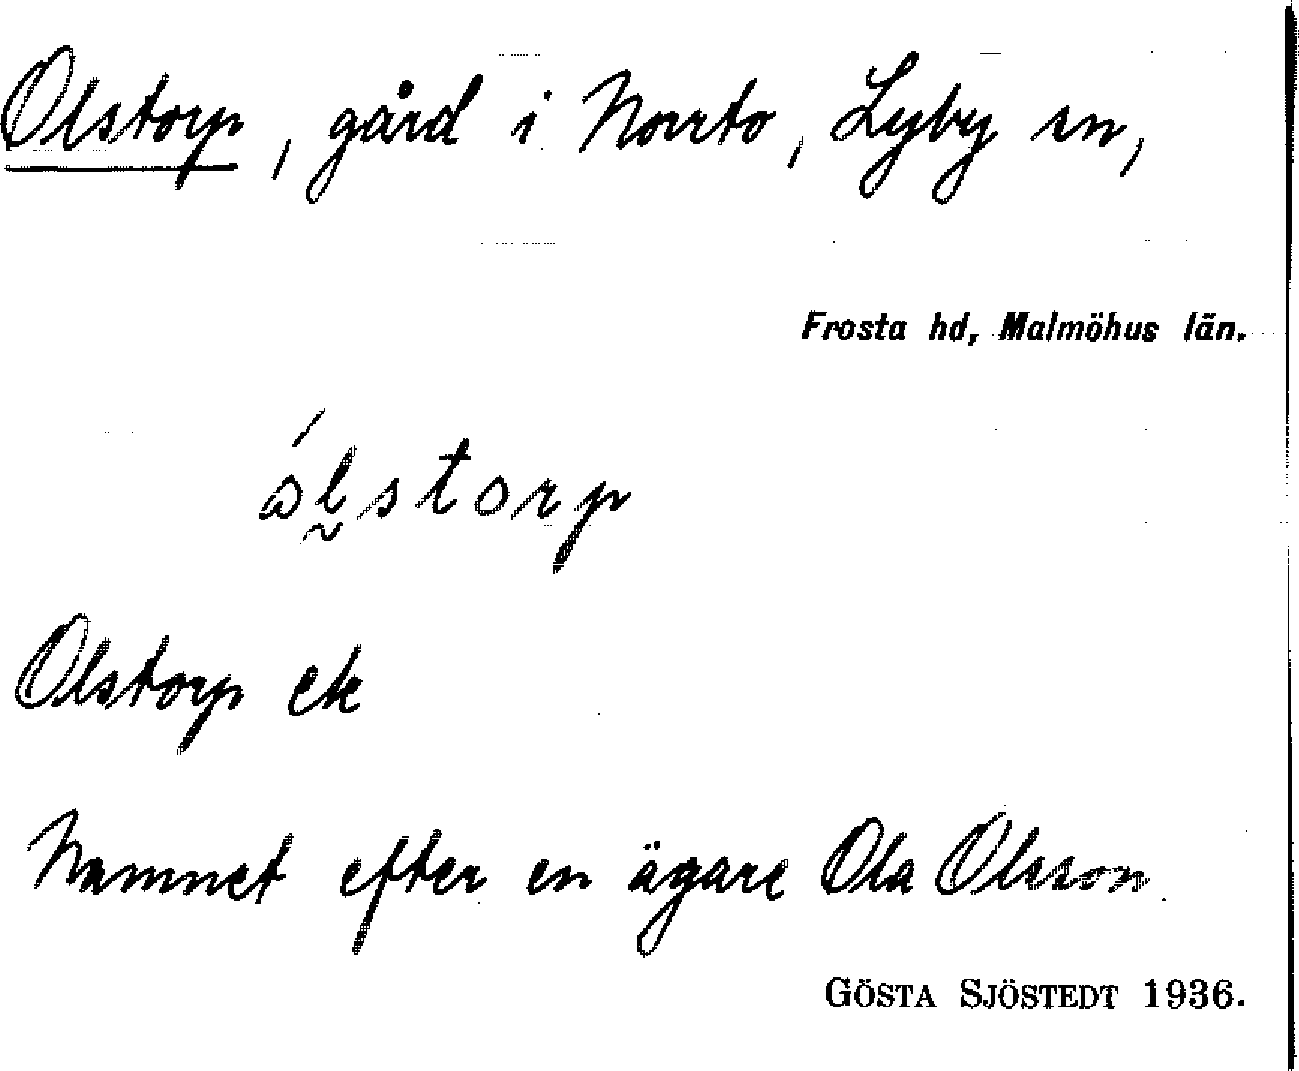 Olstorp, gård i Norrto, Lyby sn,
Frosta hd, Malmöhus län.
Olstorp ek
Namnet efter en ägare Ola Olsson.
GÖSTA SJÖSTEDT 1936.